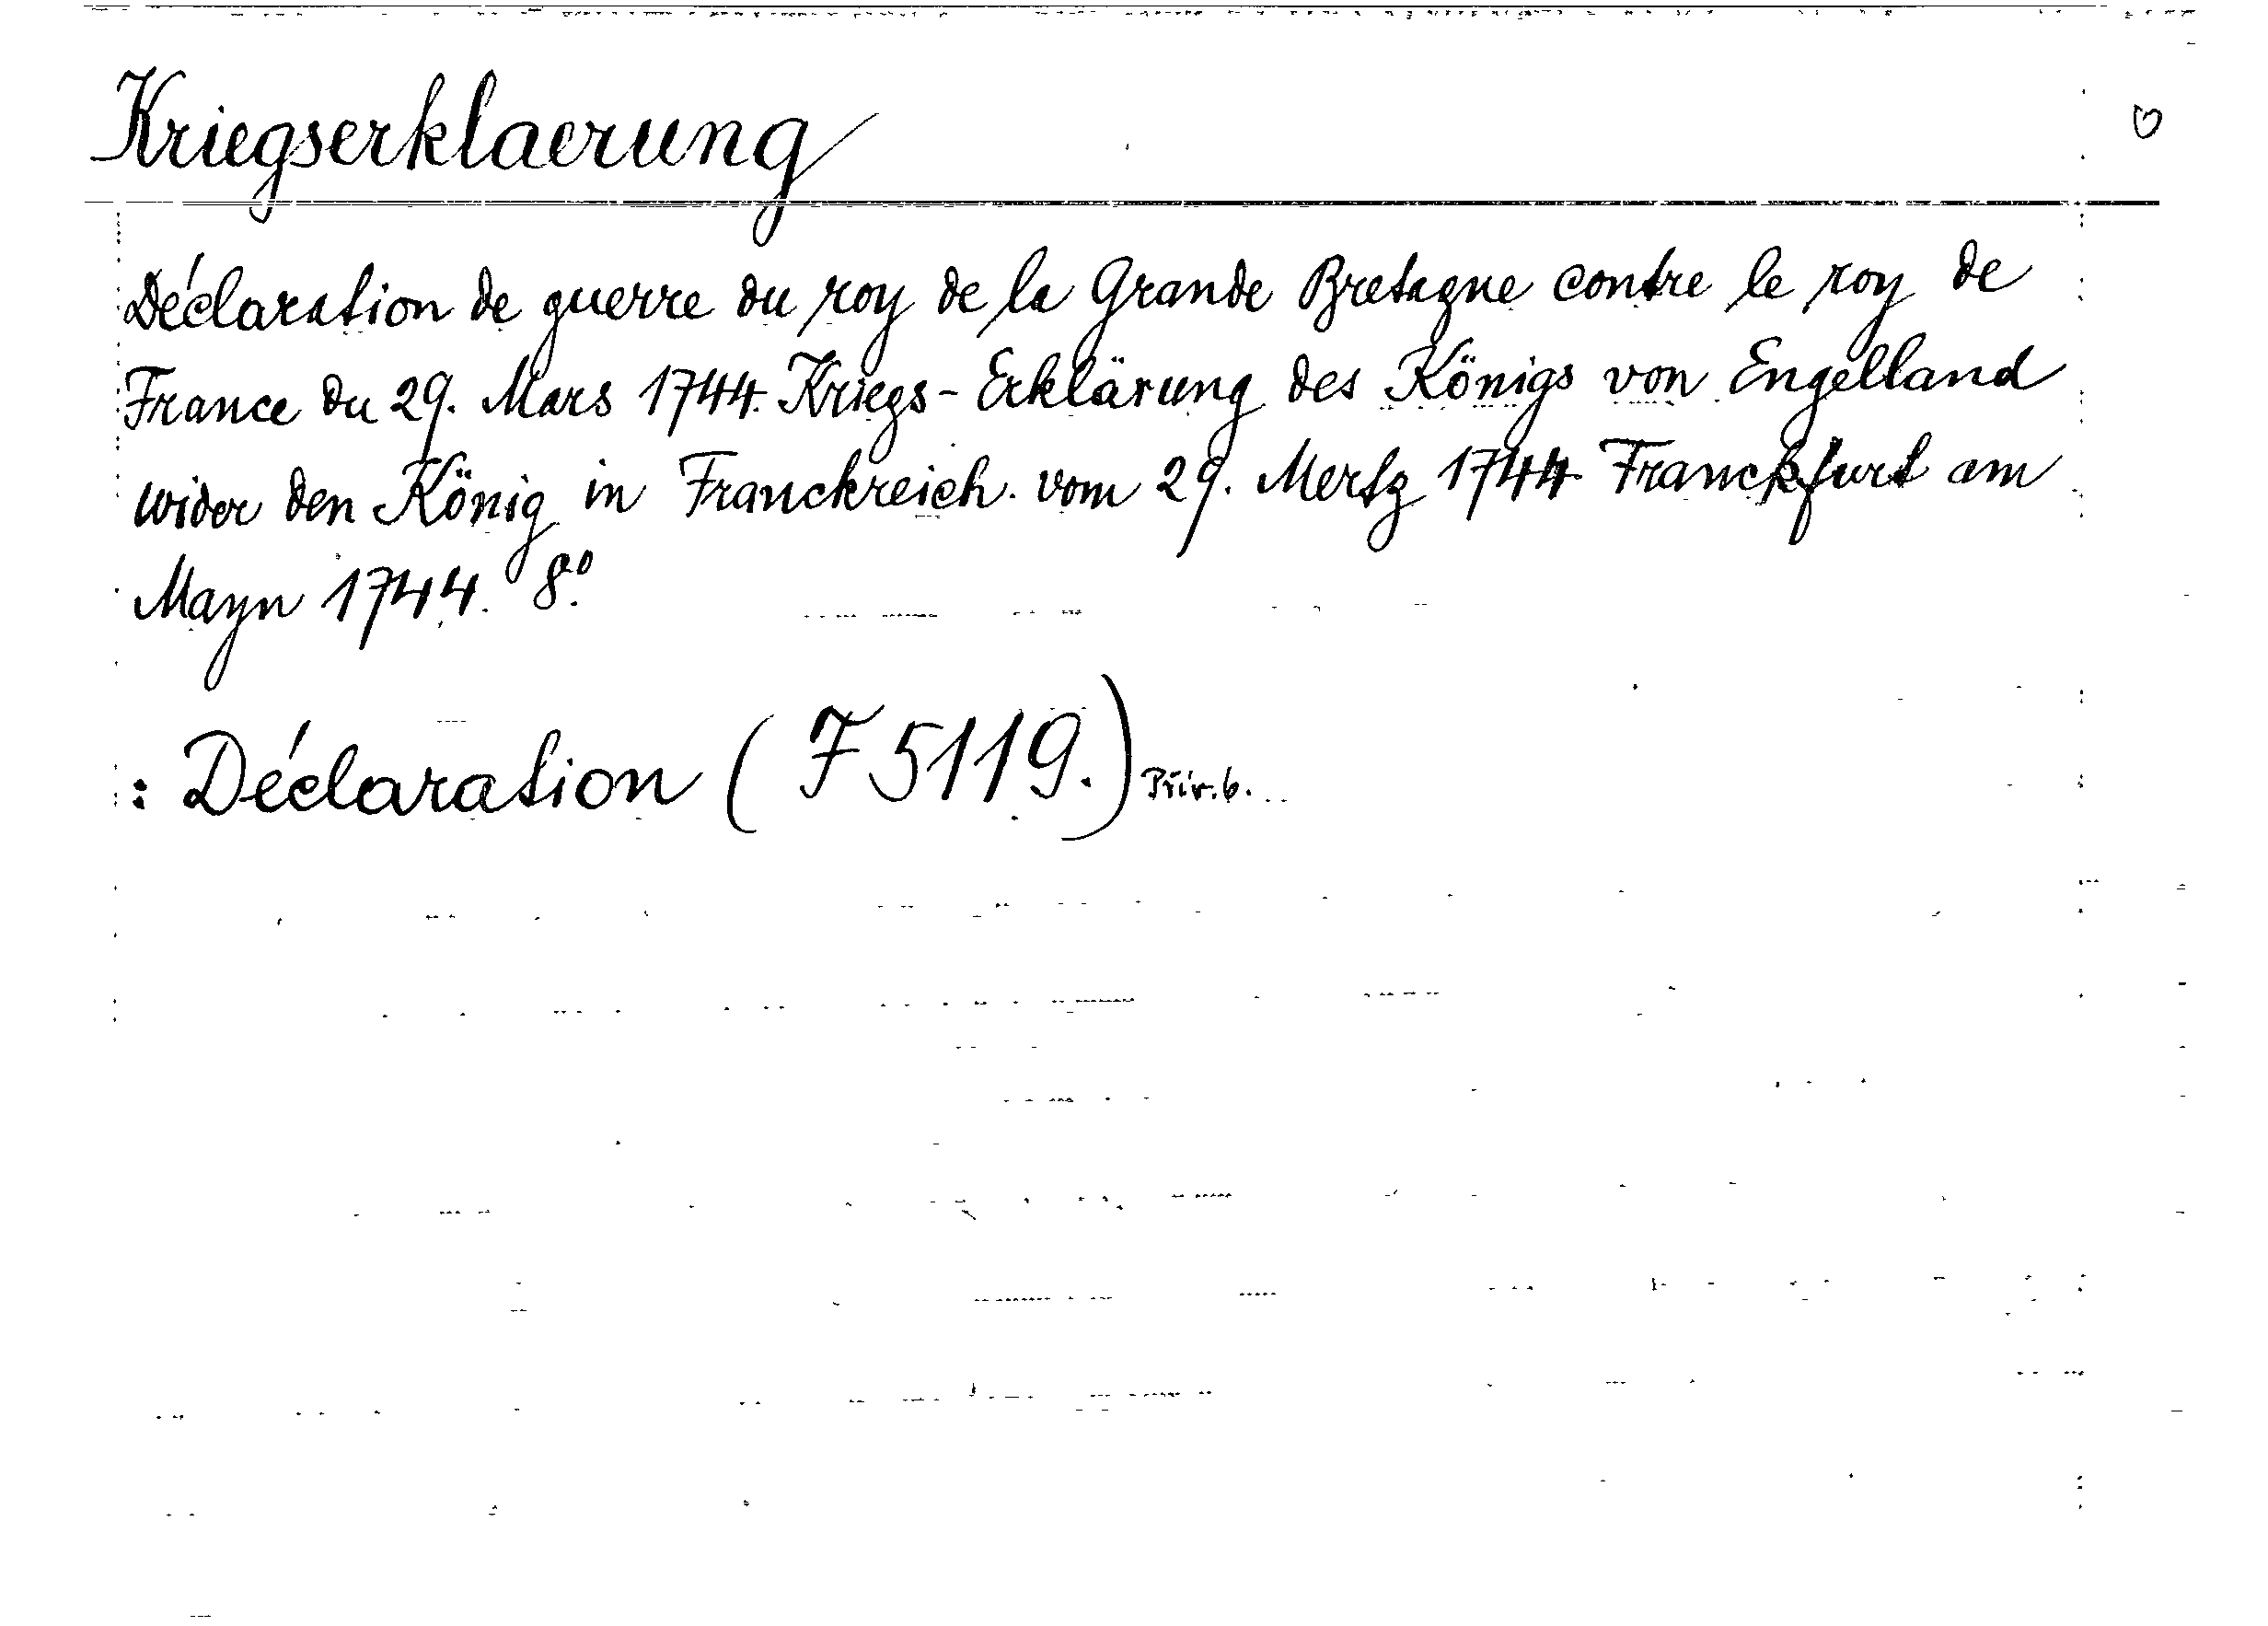 Kriegserklaerung
Déclaration de guerre du roy de la Grande Bretagne contre le roy de
France du 29. Mars 1744. Kriegs-Erklärung des Königs von Engelland
wider den König in Franckreich. vom 29. Mertz 1744. Franckfurt am
Mayn 1744. 8º.
: Déclaration (F 5119.) Přív. 6.